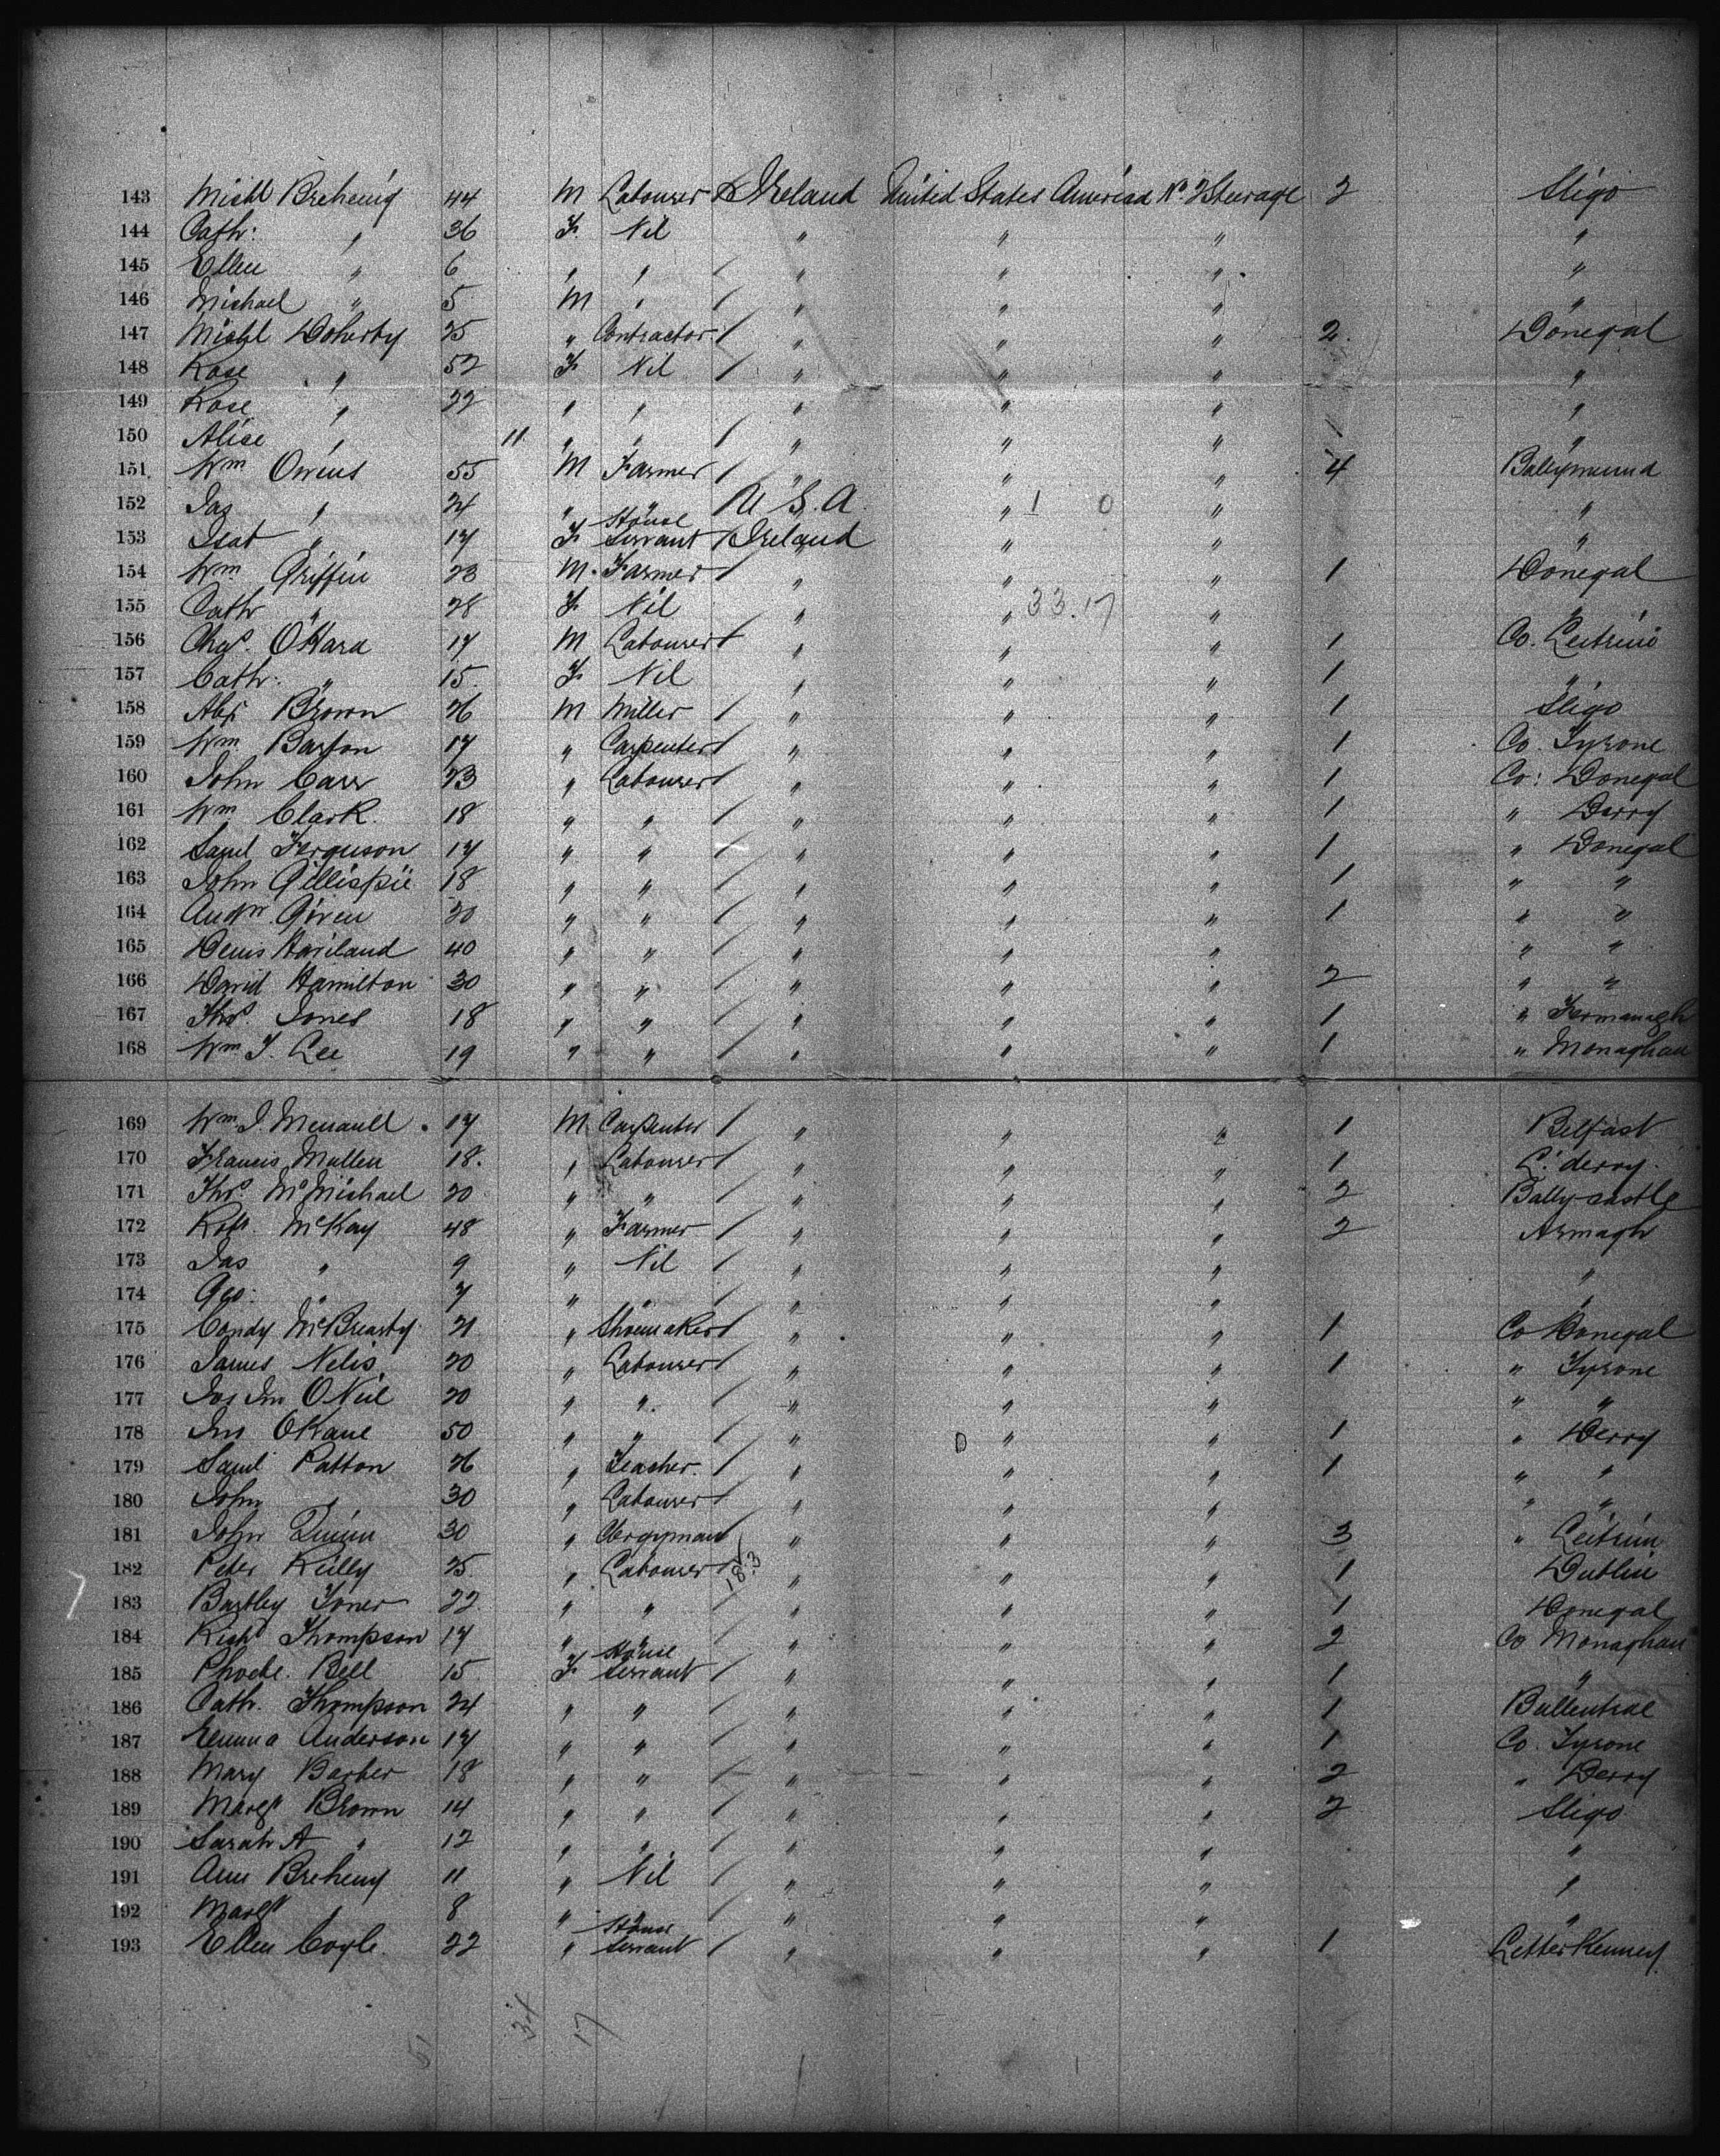 143 Michl Breheny 44 M Labourer Ireland United States America No. 2 Steerage 2 Sligo
144 Cath: " 36 F. Nil " " " "
145 Ellen " 6 " " / " " " "
146 Michael " 5 M " / " " " "
147 Michl Doherty 25 " Contractor / " " " 2 Donegal
148 Rose " 52 F Nil / " " " "
149 Rose " 22 " " " " " "
150 Alice " 11 " " / " " " "
151 Wm Owens 55 M Farmer / " " " 4
152 Jas " 24 " " U.S.A. " 1 0 " "
153 Isab " 17 F House Servant / Ireland " " "
154 Wm Griffin 23 M. Farmer / " " " 1 Donegal
155 Cath " 28 F Nil " " 33.17 " "
156 Chas. O'Hara 17 M Labourer / " " " 1 Co. Leitrim
157 Cath: " 15 F Nil " " " 1 "
158 Alex Brown 26 M Miller / " " " 1 Sligo
159 Wm Barton 17 " Carpenter / " " " 1 Co. Tyrone
160 John Carr 23 " Labourer / " " " 1 Co: Donegal
161 Wm Clark. 18 " " / " " " 1 " Derry
162 Saml Ferguson 17 " " / " " " 1 " Donegal
163 John Gillispie 18 " " / " " " 1 " "
164 Andw. Given 20 " " / " " " 1 " "
165 Denis Haviland 40 " " / " " " " "
166 David Hamilton 30 " " / " " " 2 " "
167 Thos. Jones 18 " " / " " " 1 " Fermanagh
168 Wm J. Lee 19 " " / " " " 1 " Monaghan
169 Wm. J. 17 M Carpenter / " " " 1 Belfast
170 Francis Mullen 18. " Labourer / " " " 1 L. derry.
171 Thos. McMichael 20 " " / " " " 2 Bally-castle
172 Robt. McKay 48 " Farmer / " " " 2 Armagh
173 Jas " 9 " Nil / " " " "
174 Geo: " 7 " " / " " " "
175 Condy McBrearty 21 " Shoemaker / " " " 1 Co Donegal
176 James Nelis 20 " Labourer / " " " 1 " Tyrone
177 Jas Jno O'Neil 20 " " / " " " " "
178 Jno O'Kane 50 " " / " " " 1 " Derry
179 Saml Patton 26 " Teacher. / " " " 1 " "
180 John " 30 " Labourer / " " " " "
181 John Quinn 30 " Clergyman / " " " 3 " Leitrim
182 Peter Reilly 25 " Labourer 183 " " " 1 Dublin
183 Bartley Toner 22 " " / " " " 1 Donegal
184 Richd Thompson 17 " " / " " " 2 Co Monaghan
185 Phoebe. Bell 15 F House Servant / " " " 1 "
186 Cath. Thompson 24 " " / " " " 1
187 Emma Anderson 17 " " / " " " 1 Co. Tyrone
188 Mary Barber 18 " " / " " " 2 " Derry
189 Margt Brown 14 " " / " " " 2 Sligo
190 Sarah A " 12 " " / " " " "
191 Ann Breheny 11 " Nil / " " " "
192 Margt " 8 " " / " " " "
193 Ellen Coyle. 22 " House Servant / " " " 1 Letter Kenney
51 34 17